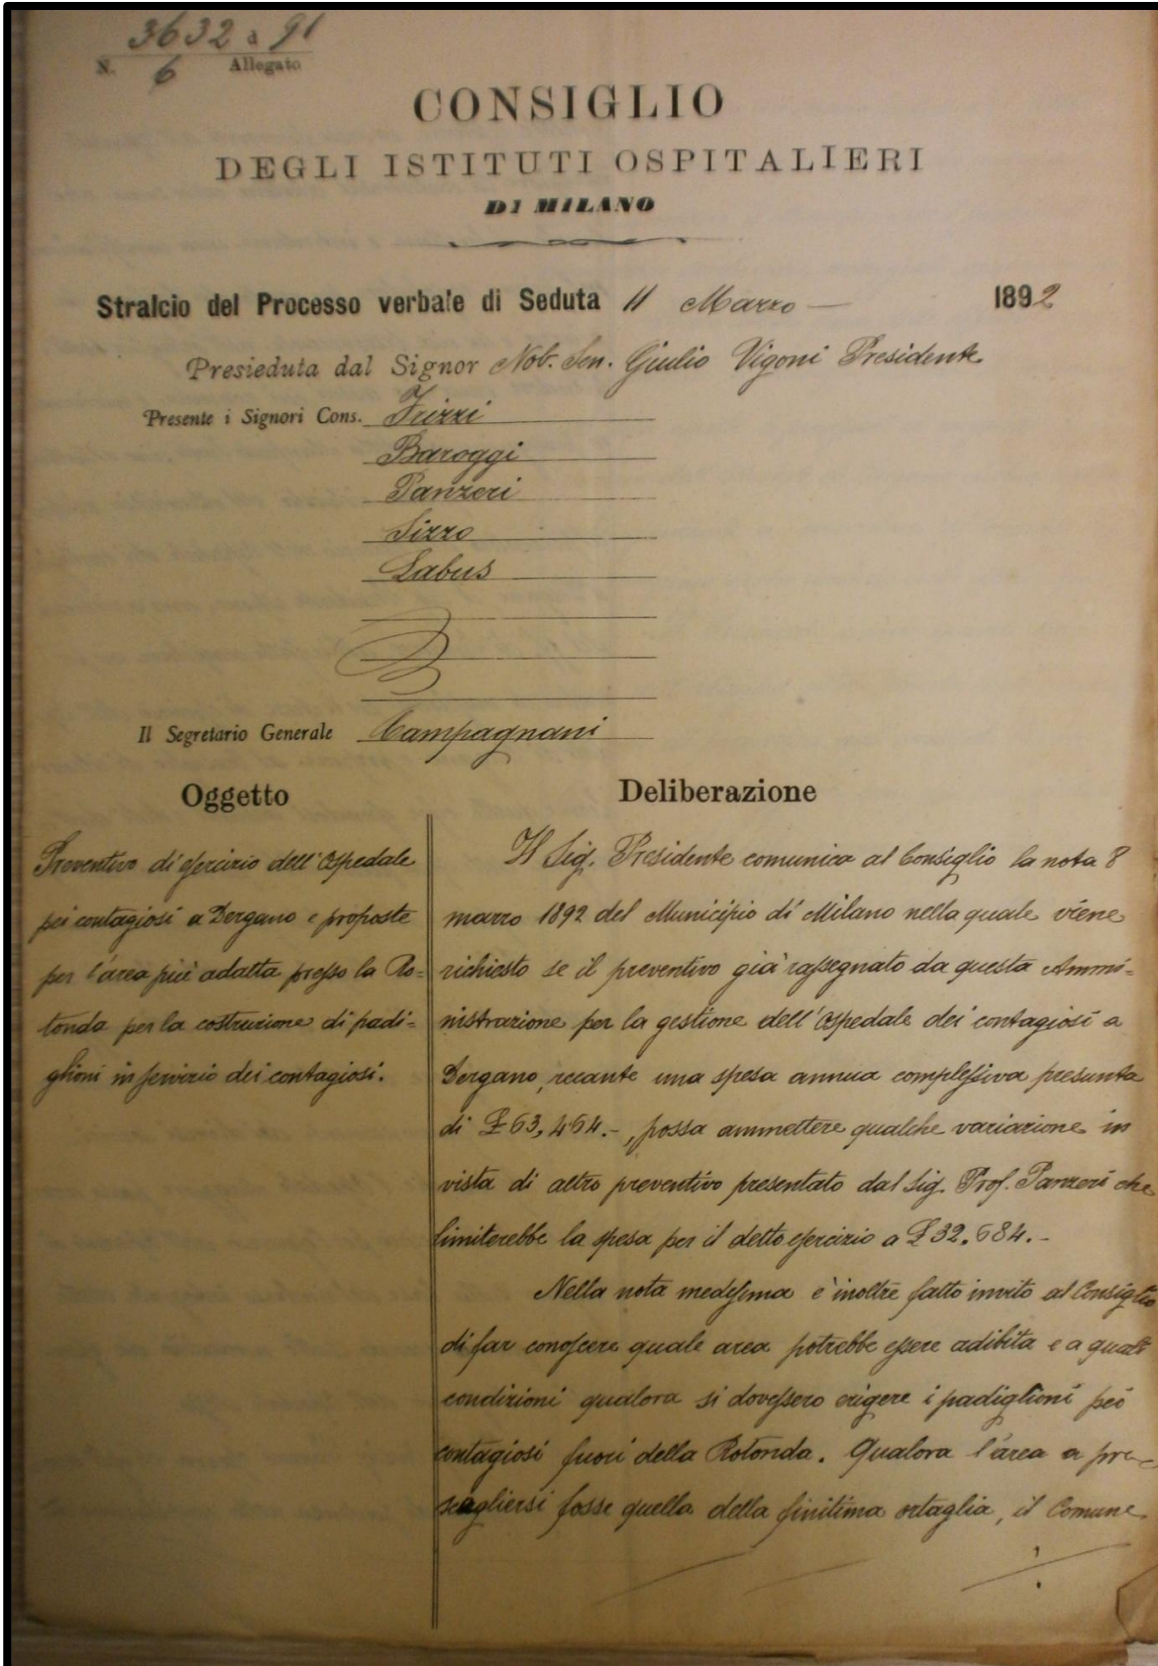 3632 a 91
N. 6 Allegato
CONSIGLIO
DEGLI ISTITUTI OSPITALIERI
DI MILANO
Stralcio del Processo verbale di Seduta 11 Marzo — 1892
Presieduta dal Signor Nob. Sen. Giulio Vigoni Presidente
Presente i Signori Cons. Frizzi
Baroggi
Panzeri
Sizzo
Labus
Il Segretario Generale Campagnani
Oggetto
Preventivo di esercizio dell'Ospedale
pei contagiosi a Dergano e proposte
per l'area più adatta presso la Ro-
tonda per la costruzione di padi-
glioni in servizio dei contagiosi.
Deliberazione
Il Sig. Presidente comunica al Consiglio la nota 8
marzo 1892 del Municipio di Milano nella quale viene
richiesto se il preventivo già rassegnato da questa Ammi-
nistrazione per la gestione dell'Ospedale dei contagiosi a
Dergano, recante una spesa annua complessiva presunta
di £ 63,464.-, possa ammettere qualche variazione in
vista di altro preventivo presentato dal Sig. Prof. Panzeri che
limiterebbe la spesa per il detto esercizio a £ 32.684.-
Nella nota medesima è inoltre fatto invito al Consiglio
di far conoscere quale area potrebbe essere adibita e a quali
condizioni qualora si dovessero erigere i padiglioni pei
contagiosi fuori della Rotonda. Qualora l'area a pre-
scegliersi fosse quella della finitima ortaglia, il Comune